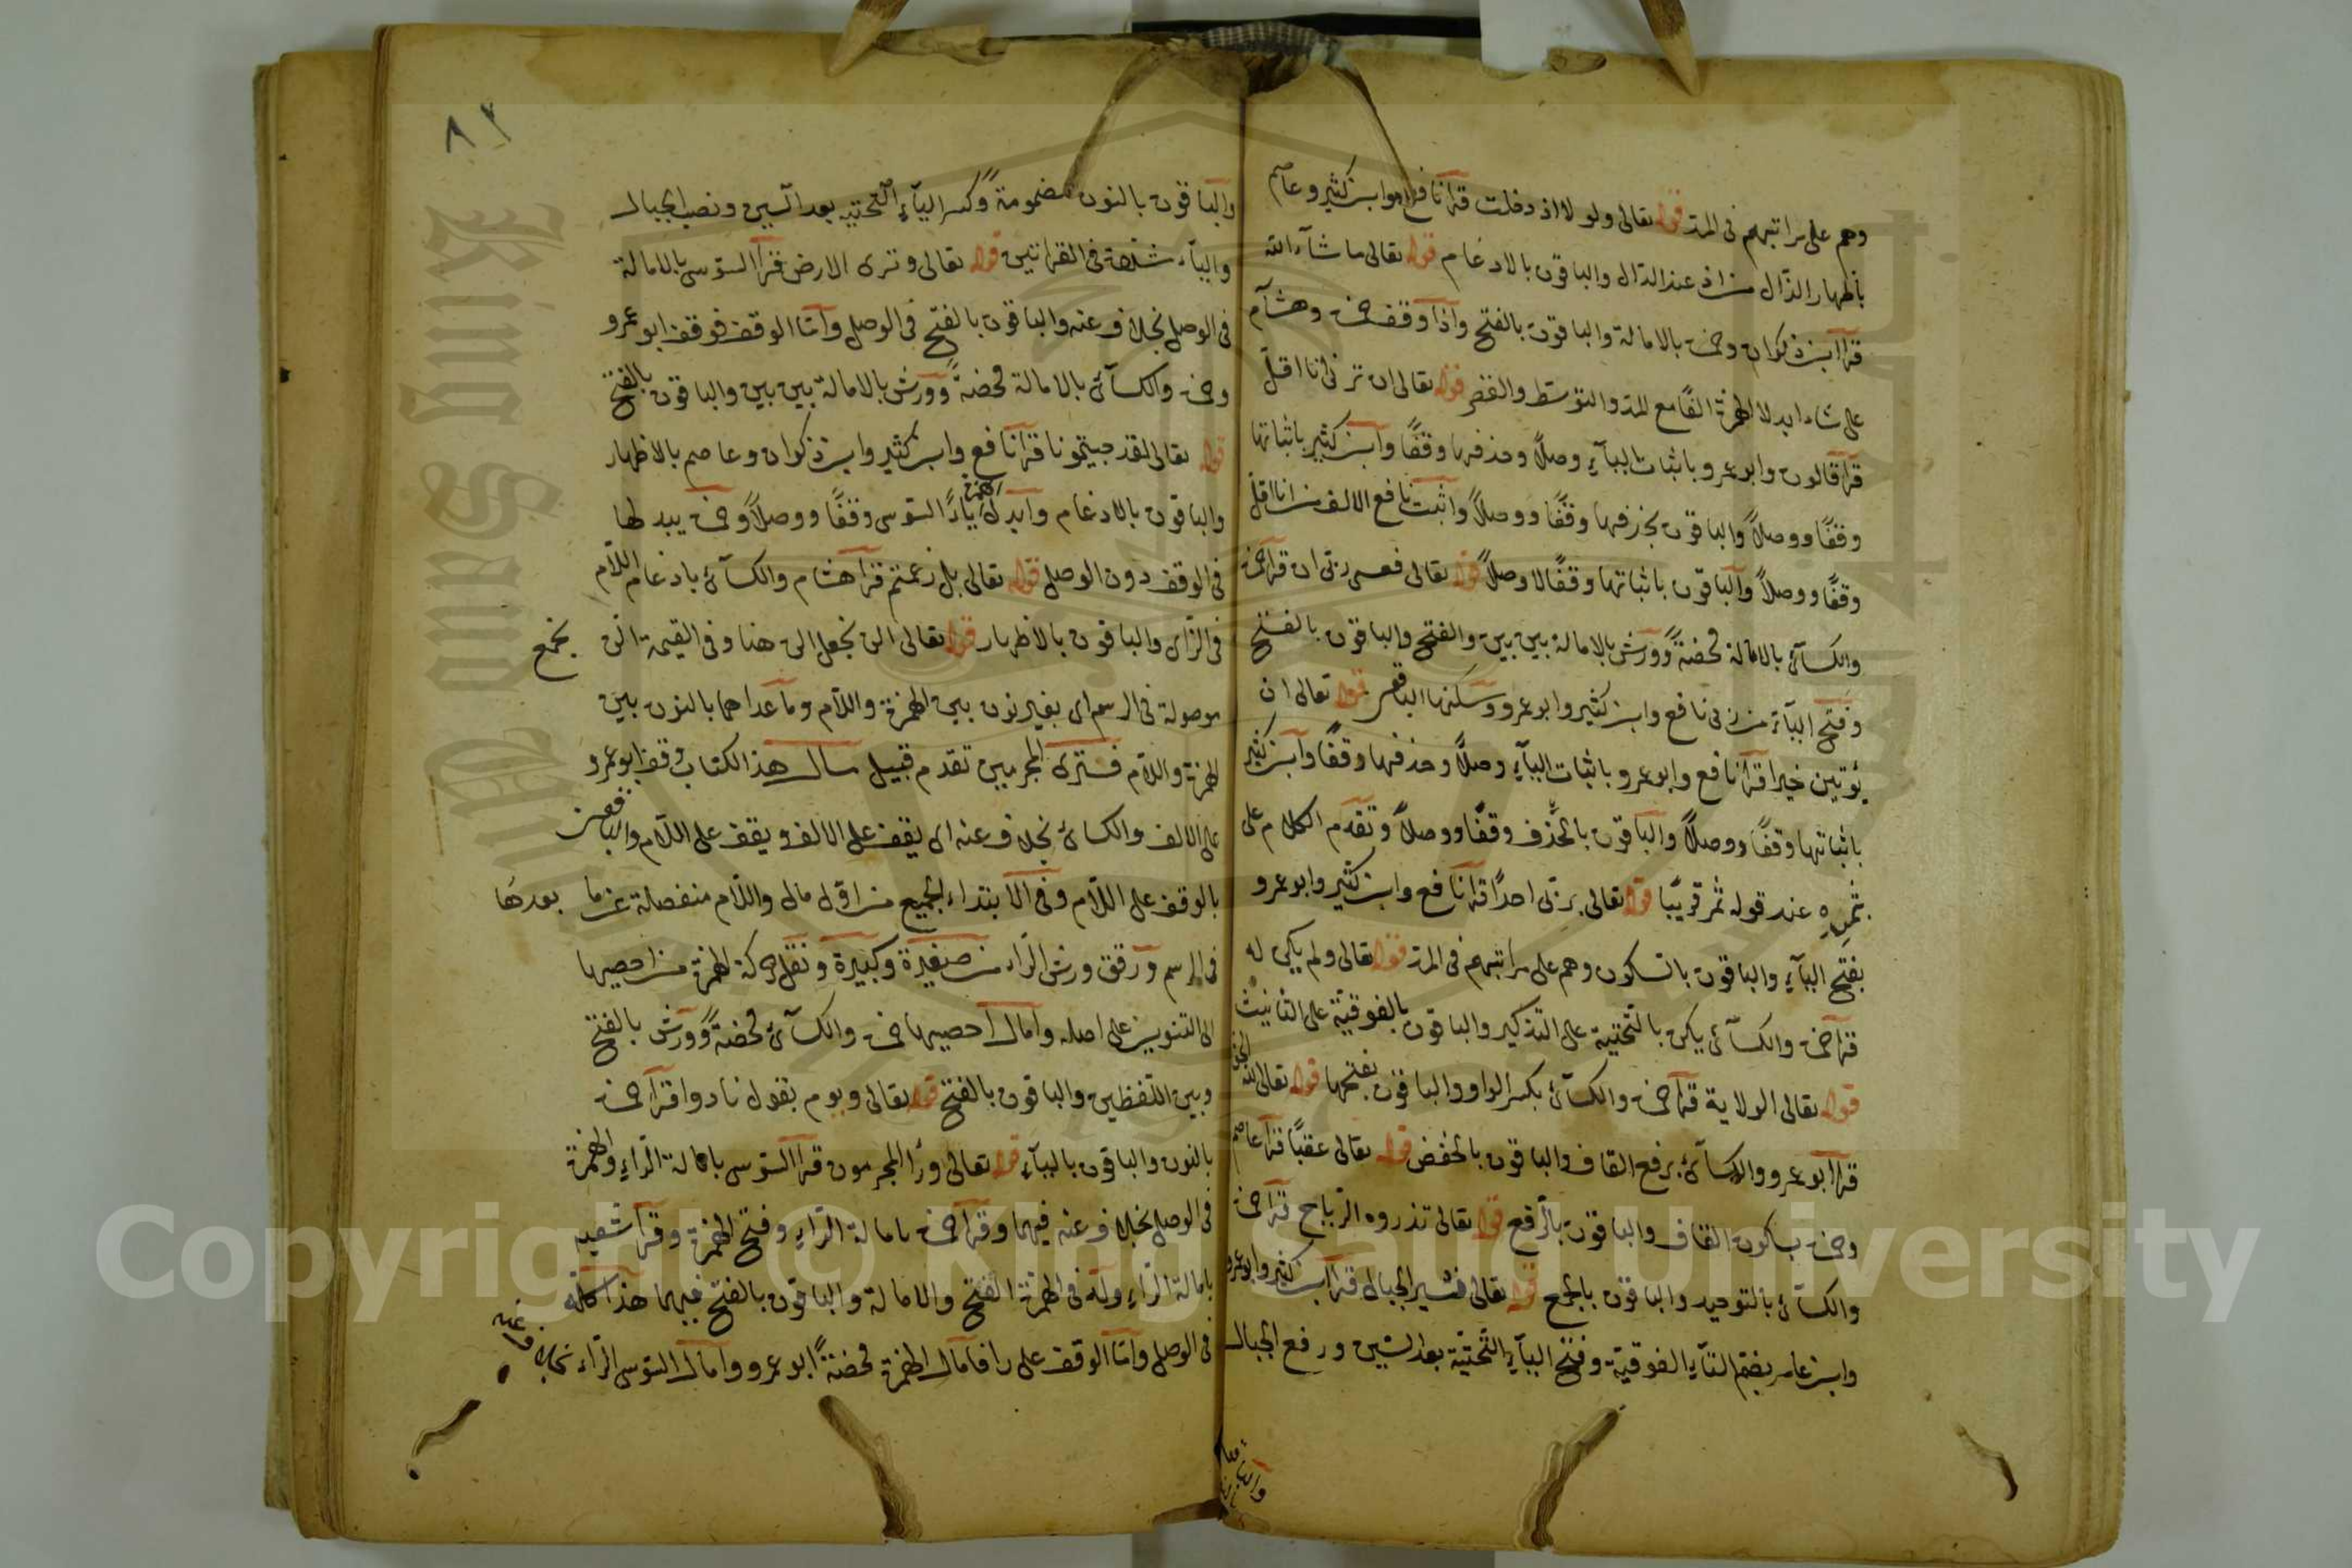 وهم على مراتبهم فى المد قوله تعالى ولولا اذ دخلت قرأ نافع وابن كثير وعاصم
بأظهار الذال من اذ عند الدال والباقون بالادغام قوله تعالى ما شآء الله
قرأ ابن ذكوان وحمزة بالامالة والباقون بالفتح واذا وقف حمزة وهشام
على شاء ابدلا الهمزة الفًا مع المد والتوسط والقصر قوله تعالى ان ترنى انا اقلّ
قرأ قالون وابو عمرو باثبات اليآء وصلاً وحذفها وقفًا وابن كثير باثباتها
وقفًا ووصلاً والباقون بحذفها وقفًا ووصلاً واثبت نافع الالف من انا اقل
وقفًا ووصلاً والباقون باثباتها وقفًا لا وصلاً قوله تعالى فعسى ربى ان قرأ حمزة
والكسآئى بالامالة محضةً وورش بالامالة بين بين والفتح والباقون بالفتح
وفتح اليآء من ربى نافع وابن كثير وابو عمرو وسكنها الباقون قوله تعالى ان
يؤتين خيرا قرأ نافع وابو عمرو باثبات اليآء وصلاً وحذفها وقفًا وابن كثير
باثباتها وقفًا ووصلاً والباقون بالحذف وقفًا ووصلاً وتقدم الكلام على
بثمره عند قوله ثمر قريبًا قوله تعالى بربّى احدًا قرأ نافع وابن كثير وابو عمرو
بفتح اليآء والباقون بالسكون وهم على مراتبهم فى المد قوله تعالى ولم يكن له
قرأ حمزة والكسآئى يكن بالتحتية على التذكير والباقون بالفوقية على التأنيث
قوله تعالى الولاية قرأ حمزة والكسآئى بكسر الواو والباقون بفتحها قوله تعالى لله الحق
قرأ ابو عمرو والكسآئى برفع القاف والباقون بالخفض قوله تعالى عقبًا قرأ عاصم
وحمزة بسكون القاف والباقون بالرفع قوله تعالى تذروه الرياح قرأ حمزة
والكسآئى بالتوحيد والباقون بالجمع قوله تعالى نسير الجبال قرأ ابن كثير وابو عمرو
وابن عامر بضم التآء الفوقية وفتح اليآء التحتية بعد السين ورفع الجبال
والباقون
٨٢
والباقون بالنون مضمومة وكسر اليآء التحتية بعد السين ونصب الجبال
واليآء مشددة فى القرأتين قوله تعالى وترى الارض قرأ السوسى بالامالة
فى الوصل بخلاف عنه والباقون بالفتح فى الوصل وامّا الوقف فوقف ابو عمرو
وحمزة والكسآئى بالامالة محضةً وورش بالامالة بين بين والباقون بالفتح
قوله تعالى لقد جيتمونا قرأ نافع وابن كثير وابن ذكوان وعاصم بالاظهار
والباقون بالادغام وابدل الهمزة ياءً السوسى وقفًا ووصلاً وحمزة يبدلها
فى الوقف دون الوصل قوله تعالى بل زعمتم قرأ هشام والكسآئى بادغام اللام
فى الزاى والباقون بالاظهار قوله تعالى الن نجعل الن هنا وفى القيمة الن نجمع
موصولة فى الرسم اى بغير نون بين الهمزة واللام وما عداهما بالنون بين
الهمزة واللام فترى المجرمين تقدم قبيل مال هذا الكتاب وقف ابو عمرو
على الالف والكسائى بخلاف عنه اى يقف على الالف ويقف على اللام والباقون
بالوقف على اللام وفى الابتداء لجميع من اول مال واللام منفصلة عن ما بعدها
فى الرسم ورقق ورش الراء من صغيرة وكبيرة ونقل حركة الهمزة من احصيها
الى التنوين على اصله وامال احصيها حمزة والكسآئى محضةً وورش بالفتح
وبين اللفظين والباقون بالفتح قوله تعالى ويوم يقول نادوا قرأ حمزة
بالنون والباقون باليآء قوله تعالى ورأ المجرمون قرأ السوسى بامالة الرآء والهمزة
فى الوصل بخلاف عنه فيهما وقرأ حمزة بامالة الرآء وفتح الهمزة وقرأ شعبه
بامالة الرآء وله فى الهمزة الفتح والامالة والباقون بالفتح فيهما هذا كله
فى الوصل وامّا الوقف على رأ فأمال الهمزة محضةً ابو عمرو وامال السوسى الراء بخلاف عنه
King Saud University
Copyright © King Saud University